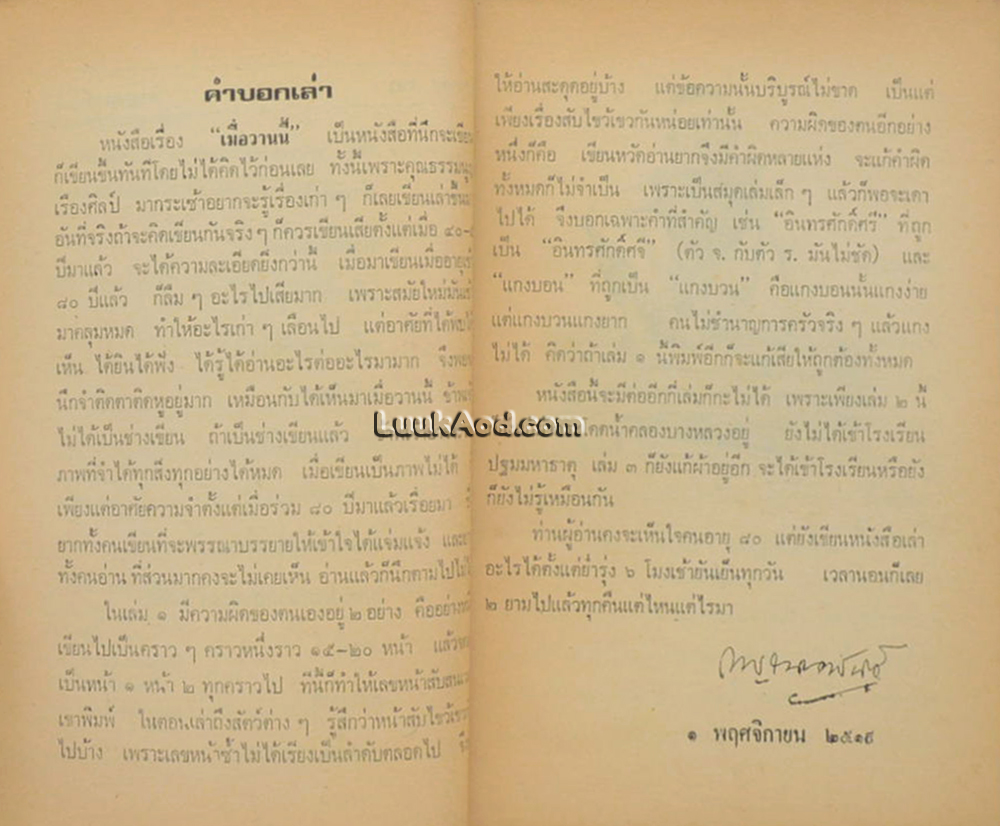 คำบอกเล่า
หนังสือเรื่อง “เมื่อวานนี้” เป็นหนังสือที่นึกจะเขียน
ก็เขียนขึ้นทันทีโดยไม่ได้คิดไว้ก่อนเลย ทั้งนี้เพราะคุณธรรมนูญ
เรื่องศิลป์ มากระเซ้าอยากจะรู้เรื่องเก่า ๆ ก็เลยเขียนเล่าขึ้น
อันที่จริงถ้าจะคิดเขียนกันจริง ๆ ก็ควรเขียนเสียตั้งแต่เมื่อ ๔๐-
ปีมาแล้ว จะได้ความละเอียดยิ่งกว่านี้ เมื่อมาเขียนเมื่ออายุ
๘๐ ปีแล้ว ก็ลืม ๆ อะไรไปเสียมาก เพราะสมัยใหม่มัน
มาคลุมหมด ทำให้อะไรเก่า ๆ เลือนไป แต่อาศัยที่ได้พบได้
เห็น ได้ยินได้ฟัง ได้รู้ได้อ่านอะไรต่ออะไรมามาก จึงพอ
นึกจำติดตาติดหูอยู่มาก เหมือนกับได้เห็นมาเมื่อวานนี้
ไม่ได้เป็นช่างเขียน ถ้าเป็นช่างเขียนแล้ว
ภาพที่จำได้ทุกสิ่งทุกอย่างได้หมด เมื่อเขียนเป็นภาพไม่ได้
เพียงแต่อาศัยความจำตั้งแต่เมื่อร่วม ๘๐ ปีมาแล้วเรื่อยมา
ยากทั้งคนเขียนที่จะพรรณาบรรยายให้เข้าใจได้แจ่มแจ้ง และ
ทั้งคนอ่าน ที่ส่วนมากคงจะไม่เคยเห็น อ่านแล้วก็นึกตามไป
ในเล่ม ๑ มีความผิดของตนเองอยู่ ๒ อย่าง คืออย่าง
เขียนไปเป็นคราว ๆ คราวหนึ่งราว ๑๕-๒๐ หน้า แล้ว
เป็นหน้า ๑ หน้า ๒ ทุกคราวไป ทีนี้ก็ทำให้เลขหน้าสับสน
เขาพิมพ์ ในตอนเล่าถึงสัตว์ต่าง ๆ รู้สึกว่าหน้าสับไขว้
ไปบ้าง เพราะเลขหน้าซ้ำไม่ได้เรียงเป็นลำดับตลอดไป จึง
ให้อ่านสะดุดอยู่บ้าง แต่ข้อความนั้นบริบูรณ์ไม่ขาด เป็นแต่
เพียงเรื่องสับไขว้เขวกันหน่อยเท่านั้น ความผิดของตนอีกอย่าง
หนึ่งก็คือ เขียนหวัดอ่านยากจึงมีคำผิดหลายแห่ง จะแก้คำผิด
ทั้งหมดก็ไม่จำเป็น เพราะเป็นสมุดเล่มเล็ก ๆ แล้วก็พอจะเดา
ไปได้ จึงบอกเฉพาะคำที่สำคัญ เช่น “อินทรศักดิ์ศรี” ที่ถูก
เป็น “อินทรศักดิ์ศจี” (ตัว จ. กับตัว ร. มันไม่ชัด) และ
“แกงบอน” ที่ถูกเป็น “แกงบวน” คือแกงบอนนั้นแกงง่าย
แต่แกงบวนแกงยาก คนไม่ชำนาญการครัวจริง ๆ แล้วแกง
ไม่ได้ คิดว่าถ้าเล่ม ๑ นี้พิมพ์อีกก็จะแก้เสียให้ถูกต้องทั้งหมด
หนังสือนี้จะมีต่ออีกกี่เล่มก็กะไม่ได้ เพราะเพียงเล่ม ๒ นี้
LuukAod.com
โดดน้ำคลองบางหลวงอยู่ ยังไม่ได้เข้าโรงเรียน
ปฐมมหาธาตุ เล่ม ๓ ก็ยังแก้ผ้าอยู่อีก จะได้เข้าโรงเรียนหรือยัง
ก็ยังไม่รู้เหมือนกัน
ท่านผู้อ่านคงจะเห็นใจคนอายุ ๘๐ แต่ยังเขียนหนังสือเล่า
อะไรได้ตั้งแต่ย่ำรุ่ง ๖ โมงเช้ายันเย็นทุกวัน เวลานอนก็เลย
๒ ยามไปแล้วทุกคืนแต่ไหนแต่ไรมา
๑ พฤศจิกายน ๒๕๑๙